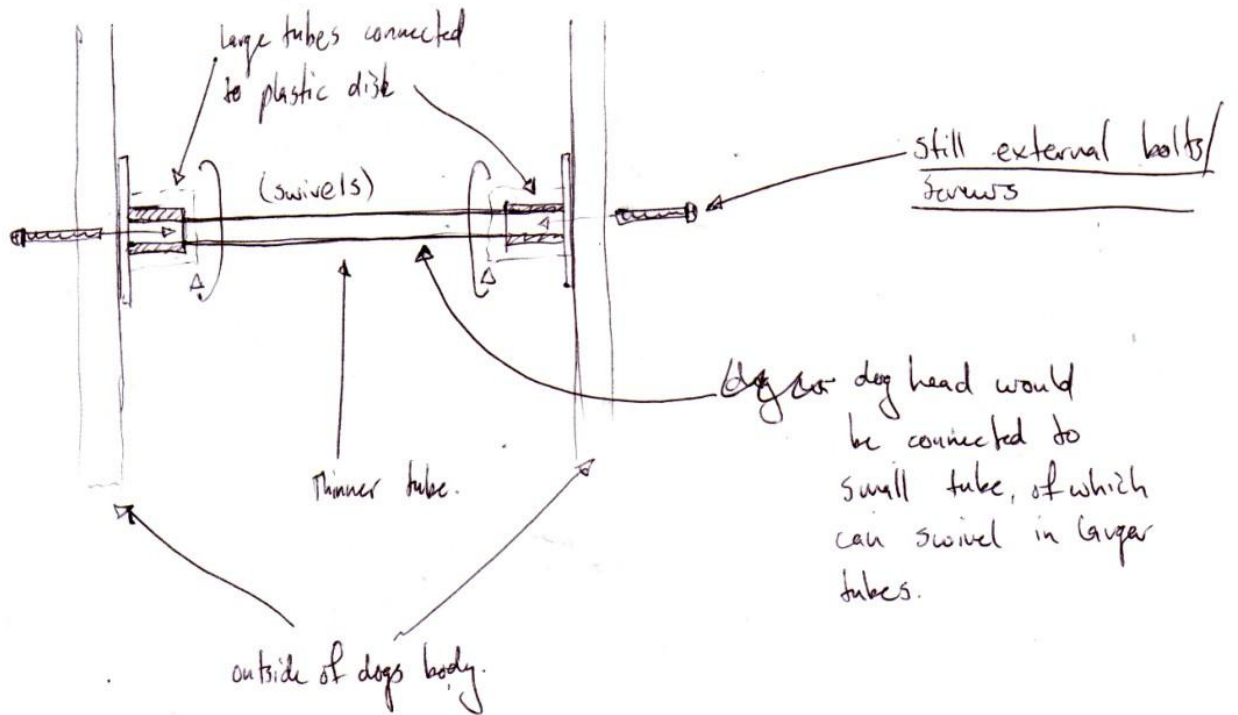 Large tubes connected
to plastic disk
(swivels)
still external bolts/
screws
dog head would
be connected to
small tube, of which
can swivel in larger
tubes.
Thinner tube.
outside of dogs body.